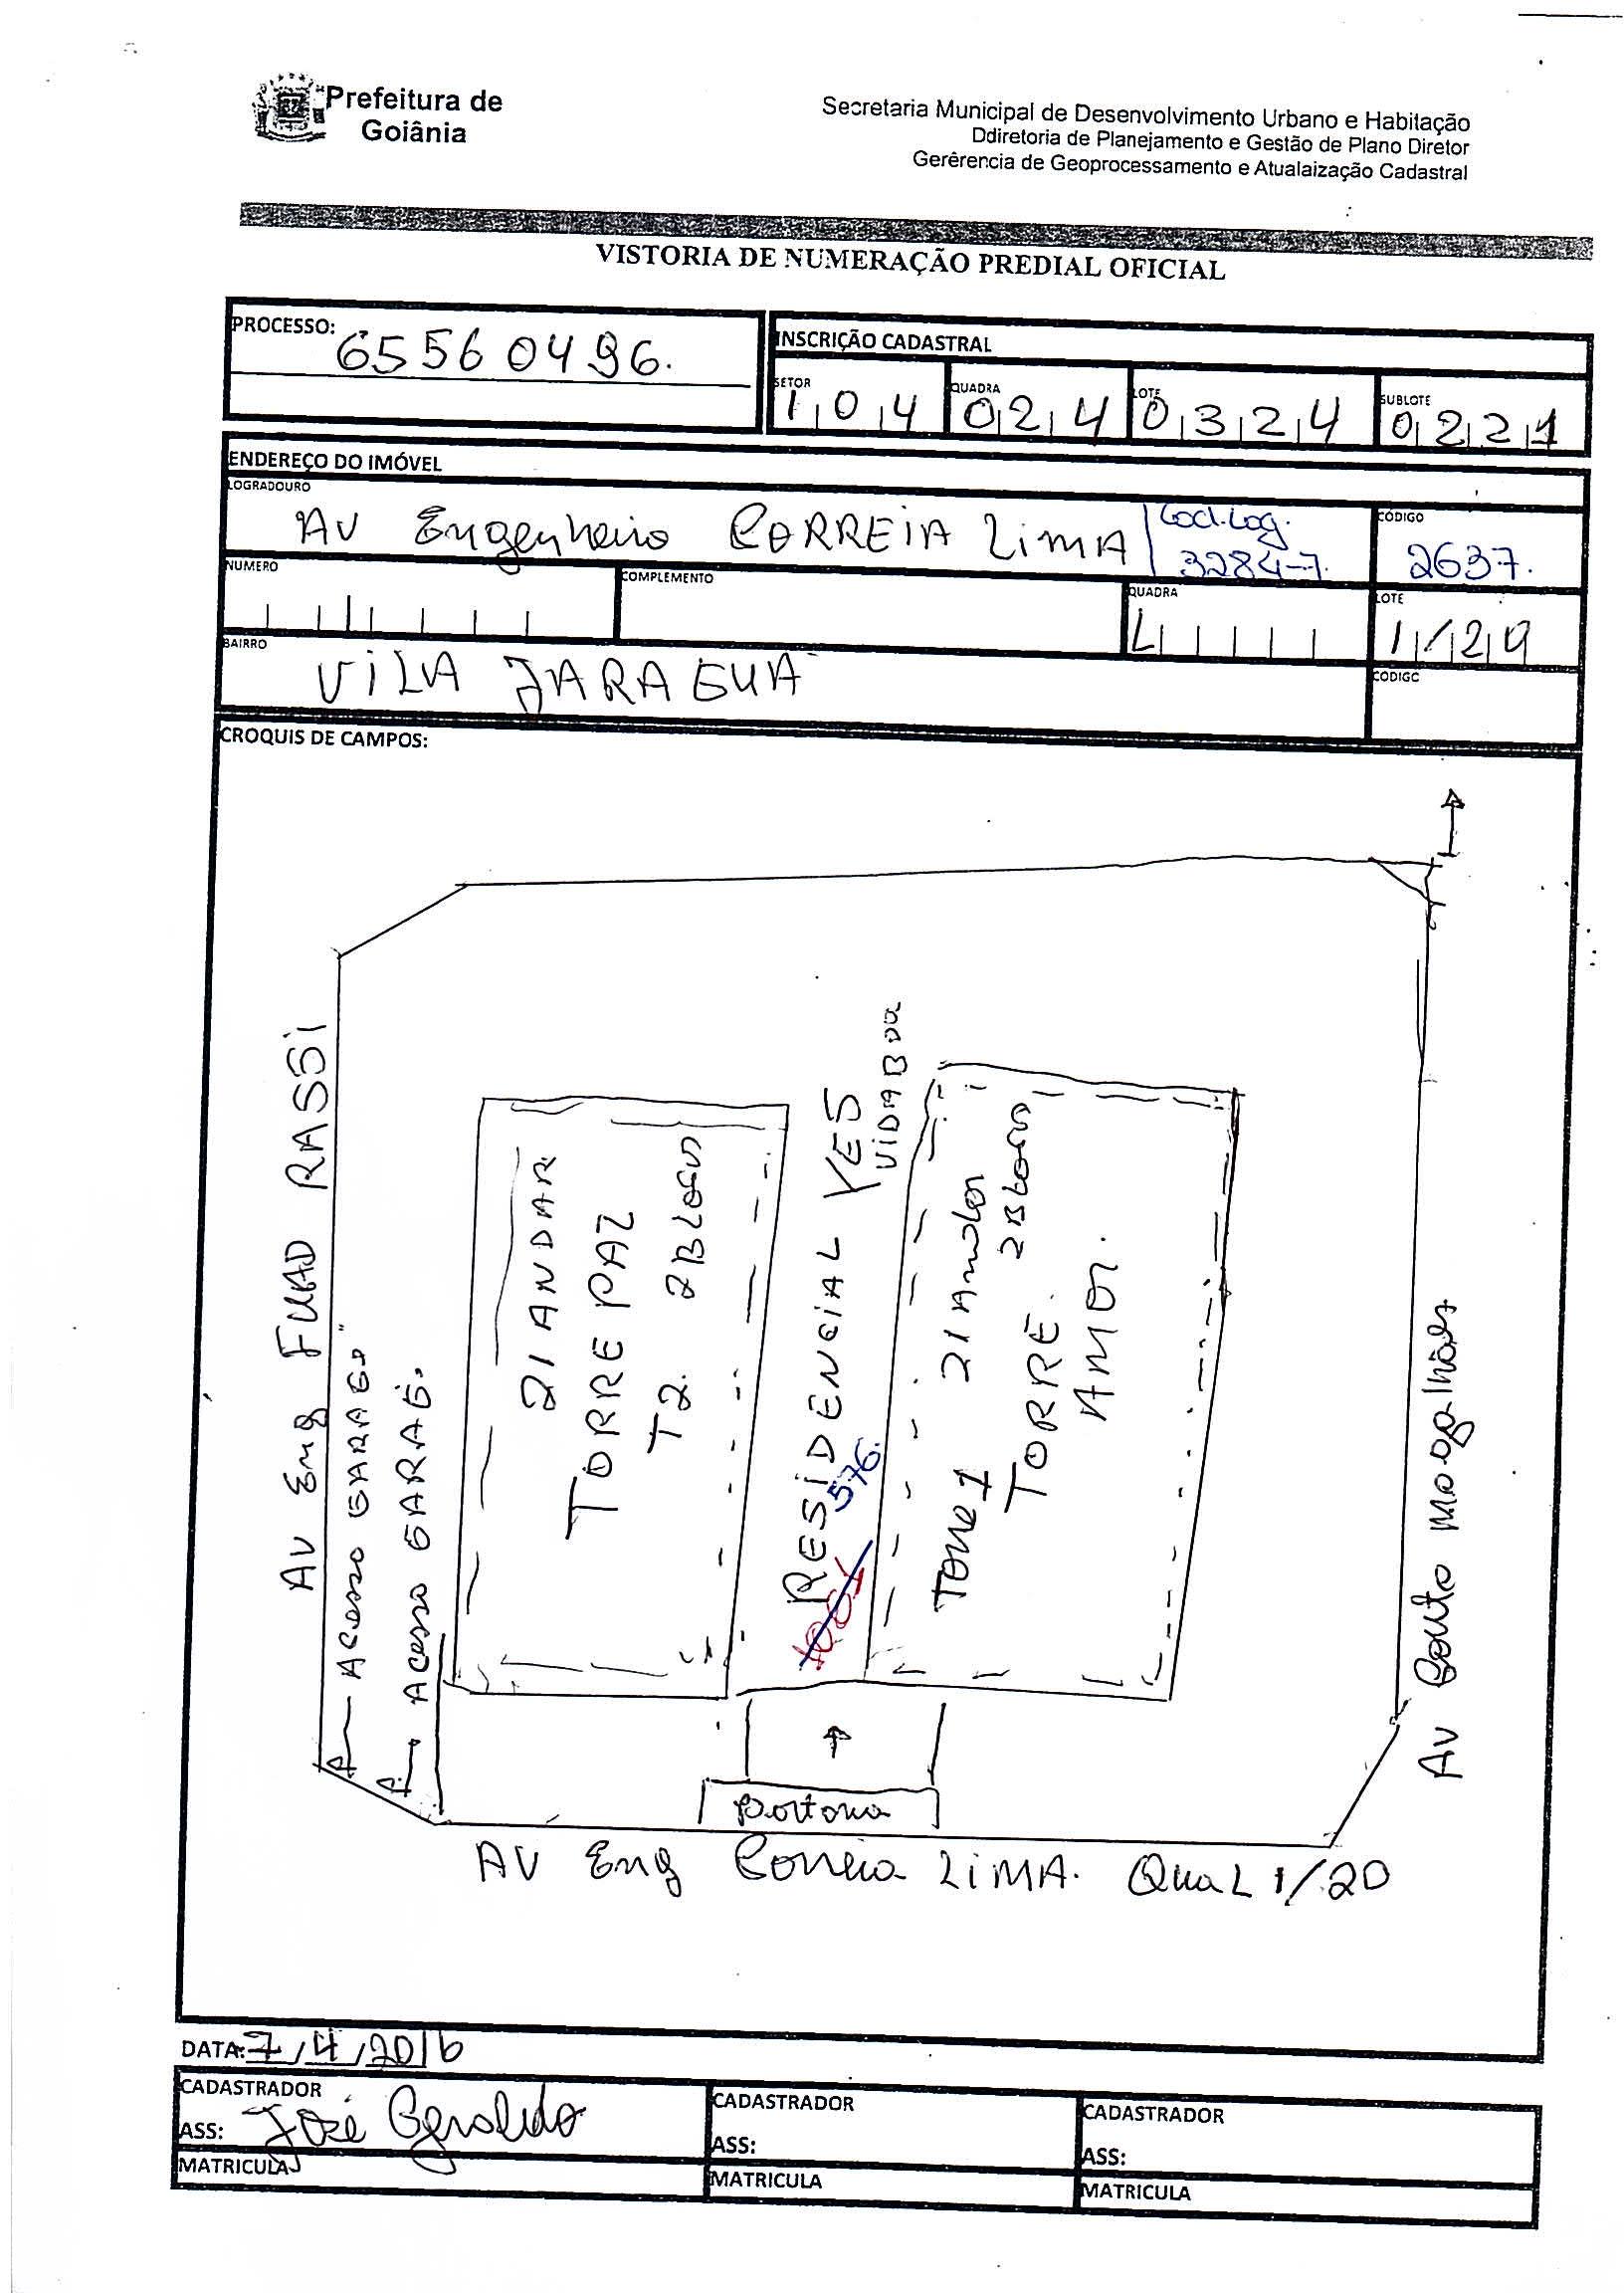 Prefeitura de
Goiânia
Secretaria Municipal de Desenvolvimento Urbano e Habitação
Ddiretoria de Planejamento e Gestão de Plano Diretor
Gerêrencia de Geoprocessamento e Atualaização Cadastral
VISTORIA DE NUMERAÇÃO PREDIAL OFICIAL
PROCESSO: 65560496.
INSCRIÇÃO CADASTRAL
SETOR 104 QUADRA 024 LOTE 0324 SUBLOTE 0221
ENDEREÇO DO IMÓVEL
LOGRADOURO AV Engenheiro CORREIA LIMA Cod.Log. 3284-7. CÓDIGO 2637.
NUMERO COMPLEMENTO QUADRA L LOTE 1/20
BAIRRO VILA JARAGUA CODIGO
CROQUIS DE CAMPOS:
AV Eng FUAD RASSI
Acesso GARAG.
Acesso GARAG.
21 ANDAR
TORRE PAZ
T2. 2 BLOCOS
RESIDENCIAL YES
VIDA BOA
576.
Torre 1 21 Andar
TORRE. 2 Blocos
AMOR.
AV Couto magalhães
portaria
AV Eng Correia LIMA. Qua L 1/20
DATA: 7/4/2016
CADASTRADOR
ASS: José Geraldo
MATRICULA
CADASTRADOR
ASS:
MATRICULA
CADASTRADOR
ASS:
MATRICULA